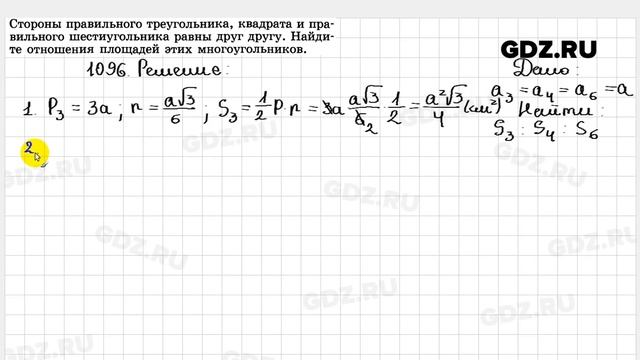 Стороны правильного треугольника, квадрата и пра-
вильного шестиугольника равны друг другу. Найди-
те отношения площадей этих многоугольников.
GDZ.RU
1096. Решение:
Дано:
a₃ = a₄ = a₆ = a
1. P₃ = 3a ; r = a√3/6 ; S₃ = 1/2 P·r = 3a a√3/6 2 · 1/2 = a²√3/4 (см²)
Найти:
S₃ : S₄ : S₆
2
GDZ.RU
GDZ.RU
GDZ.RU
GDZ.RU
GDZ.RU
GDZ.RU
GDZ.RU